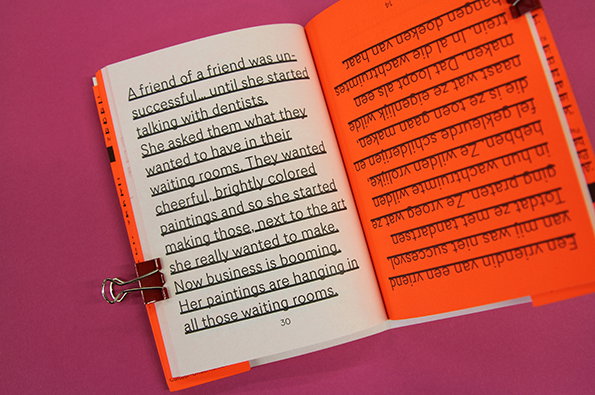 A friend of a friend was un-
successful, until she started
talking with dentists.
She asked them what they
wanted to have in their
waiting rooms. They wanted
cheerful, brightly colored
paintings and so she started
making those, next to the art
she really wanted to make.
Now business is booming.
Her paintings are hanging in
all those waiting rooms.
30
Een vriendin van een vriend
van mij was niet succesvol
Totdat ze met tandartsen
ging praten. Ze vroeg wat ze
in hun wachtruimte wilden
hebben. Ze wilden vrolijke
fel gekleurde schilderijen
die is ze toen gaan maken
naast wat ze eigenlijk wilde
maken. Dat loopt als een
trein. In al die wachtruimtes
hangen doeken van haar.
14